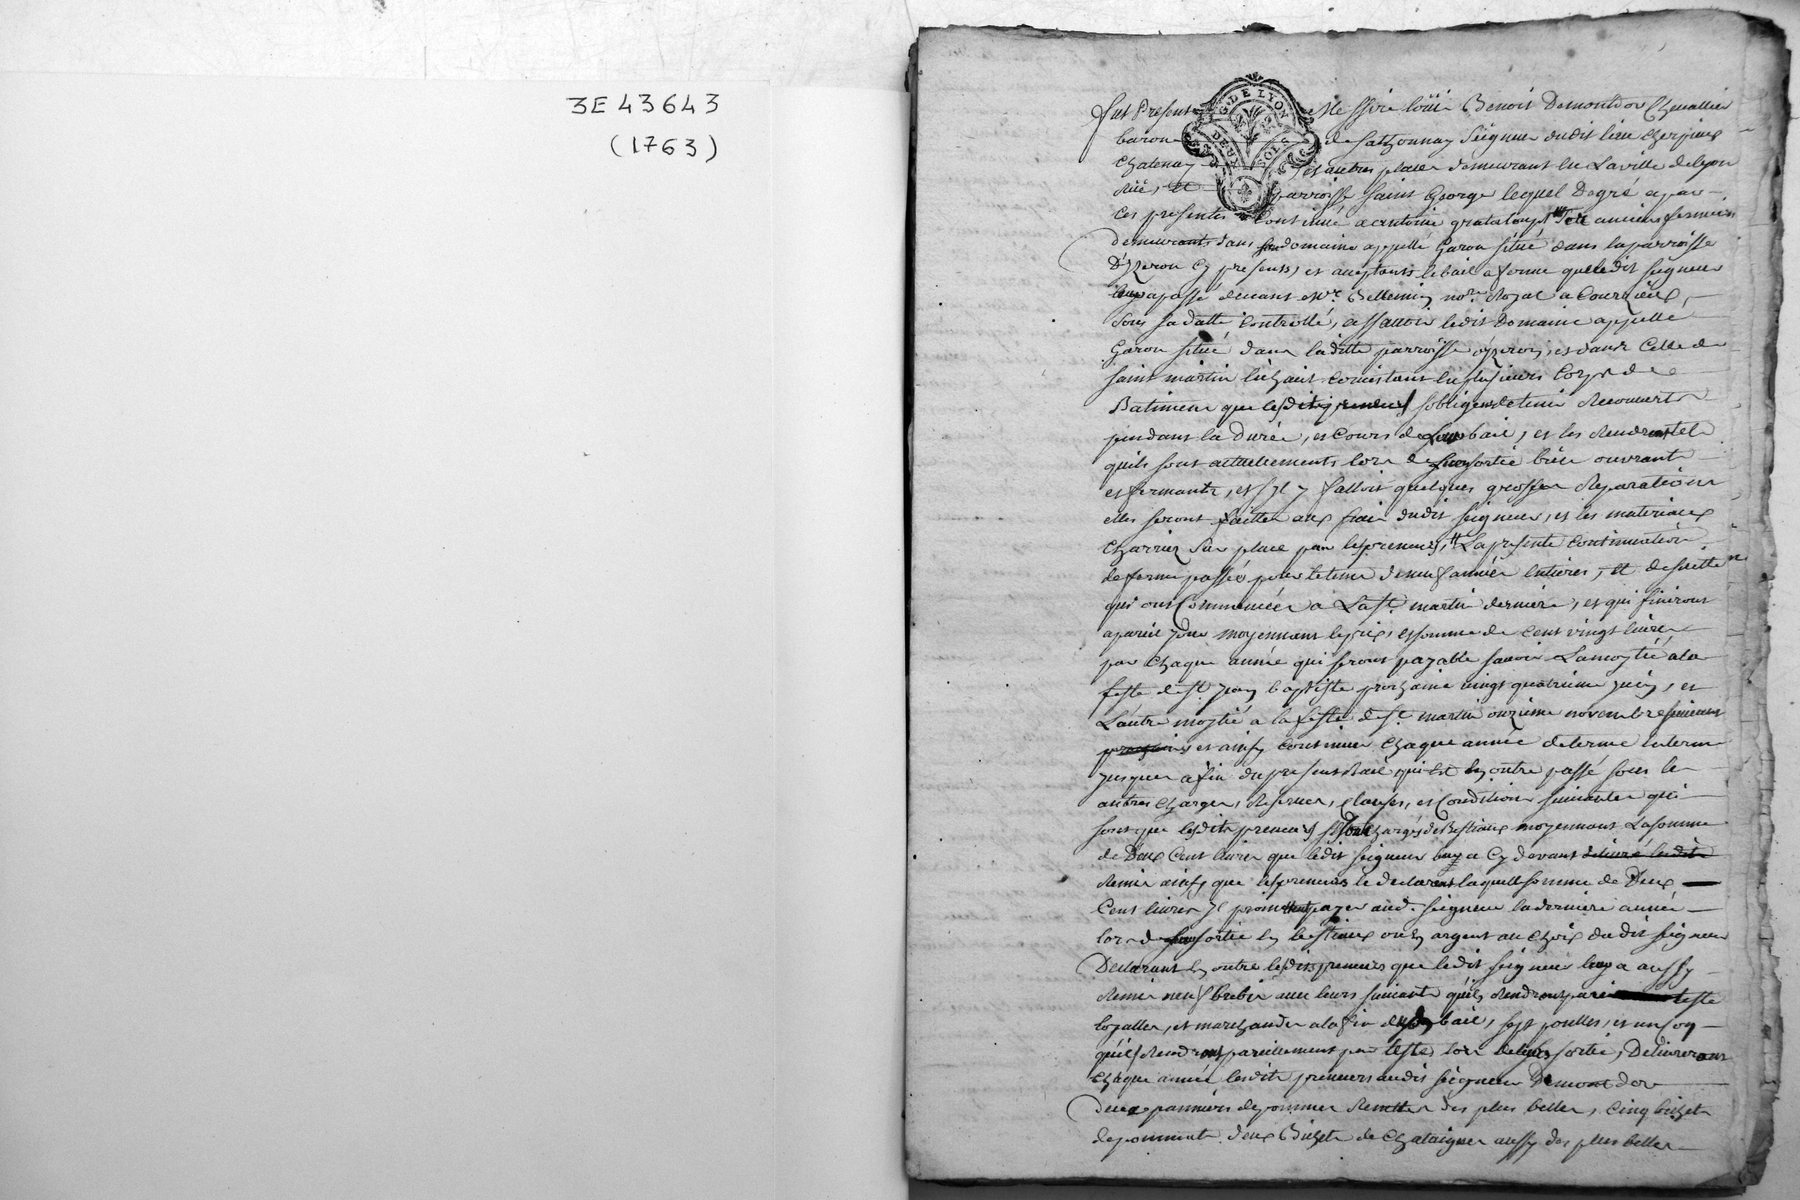 3E 43643
(1763)
G. DE LYON
DEUX SOLS
fut Present Messire loüis Benoit Demontdor Chevallier
baron de sathonnay Seigneur dudit lieu
Chatenay et autres places demeurant en La ville de lyon
parroisse saint George lequel Degré a par
ces presentes Continué a antoine grataloup anciens fermiers
demeurants dans son domaine appellé Garon situé dans la parroisse
D'yzeron Cy presents, et acceptants le bail a ferme que ledit seigneur
leur a passé devant Me. Bellemin nore. Royal a Courzieu,
sous sa datte Controllé, assavoir ledit Domaine appellé
Garon situé dans laditte parroisse d'yzeron, et dans Celle de
saint martin Consistant en plusieurs Corps de
Batiments que lesdits preneurs s'obligent de tenir Recouverts
pendant la Durée, et Cours de Leur bail, et les Rendront tels
quils sont actuellements lors de Leur sortie bien ouvrants
et fermants, et s'il y falloit quelques grosses Reparations
elles seront faittes aux frais dudit seigneur, et les materiaux
Charriez sur place par les preneurs, La presente Continuation
de ferme passée pour le tems de neuf années entieres, et de suitte
qui ont Commencées a La St. martin derniere, et qui finiront
a pareil jour moyennant le prix, et somme de Cent vingt livres
par Chaque année qui seront payable savoir La moytié a la
feste de St. Jean baptiste prochaine vingt quatrieme juin, et
L'autre moytié a la feste de St. martin onzieme novembre suivant
prochain et ainsy Continuer Chaque année de terme en terme
jusques a fin du present Bail qui est En outre passé sous les
autres Charges, Reserves, Clauses, et Conditions suivantes qui
sont que lesdits preneurs se sont Chargés de Bestiaux moyennant La somme
de Deux Cent livres que ledit seigneur leur a Cy devant delivré lesdits
Remis ainsy que les preneurs le declarent laquelle somme de Deux
Cent livres promettent payer aud. seigneur la derniere année
lors de leur sortie En bestiaux ou En argent au Choix du dit seigneur
Declarant En outre lesdits preneurs que ledit seigneur leur a aussy
Remis neuf brebis avec leurs suivants qu'ils Rendront par teste
loyalles, et marchandes a la fin dudit bail, sept poulles, et un
qu'ils Rendront pareillement par testes lors de leur sortie, Delivreront
Chaque année lesdits preneurs audit seigneur Demontdor
deux panniers de pommes Renettes des plus belles, Cinq bichets
de pommes deux Bichets de Chataignes aussy des plus belles